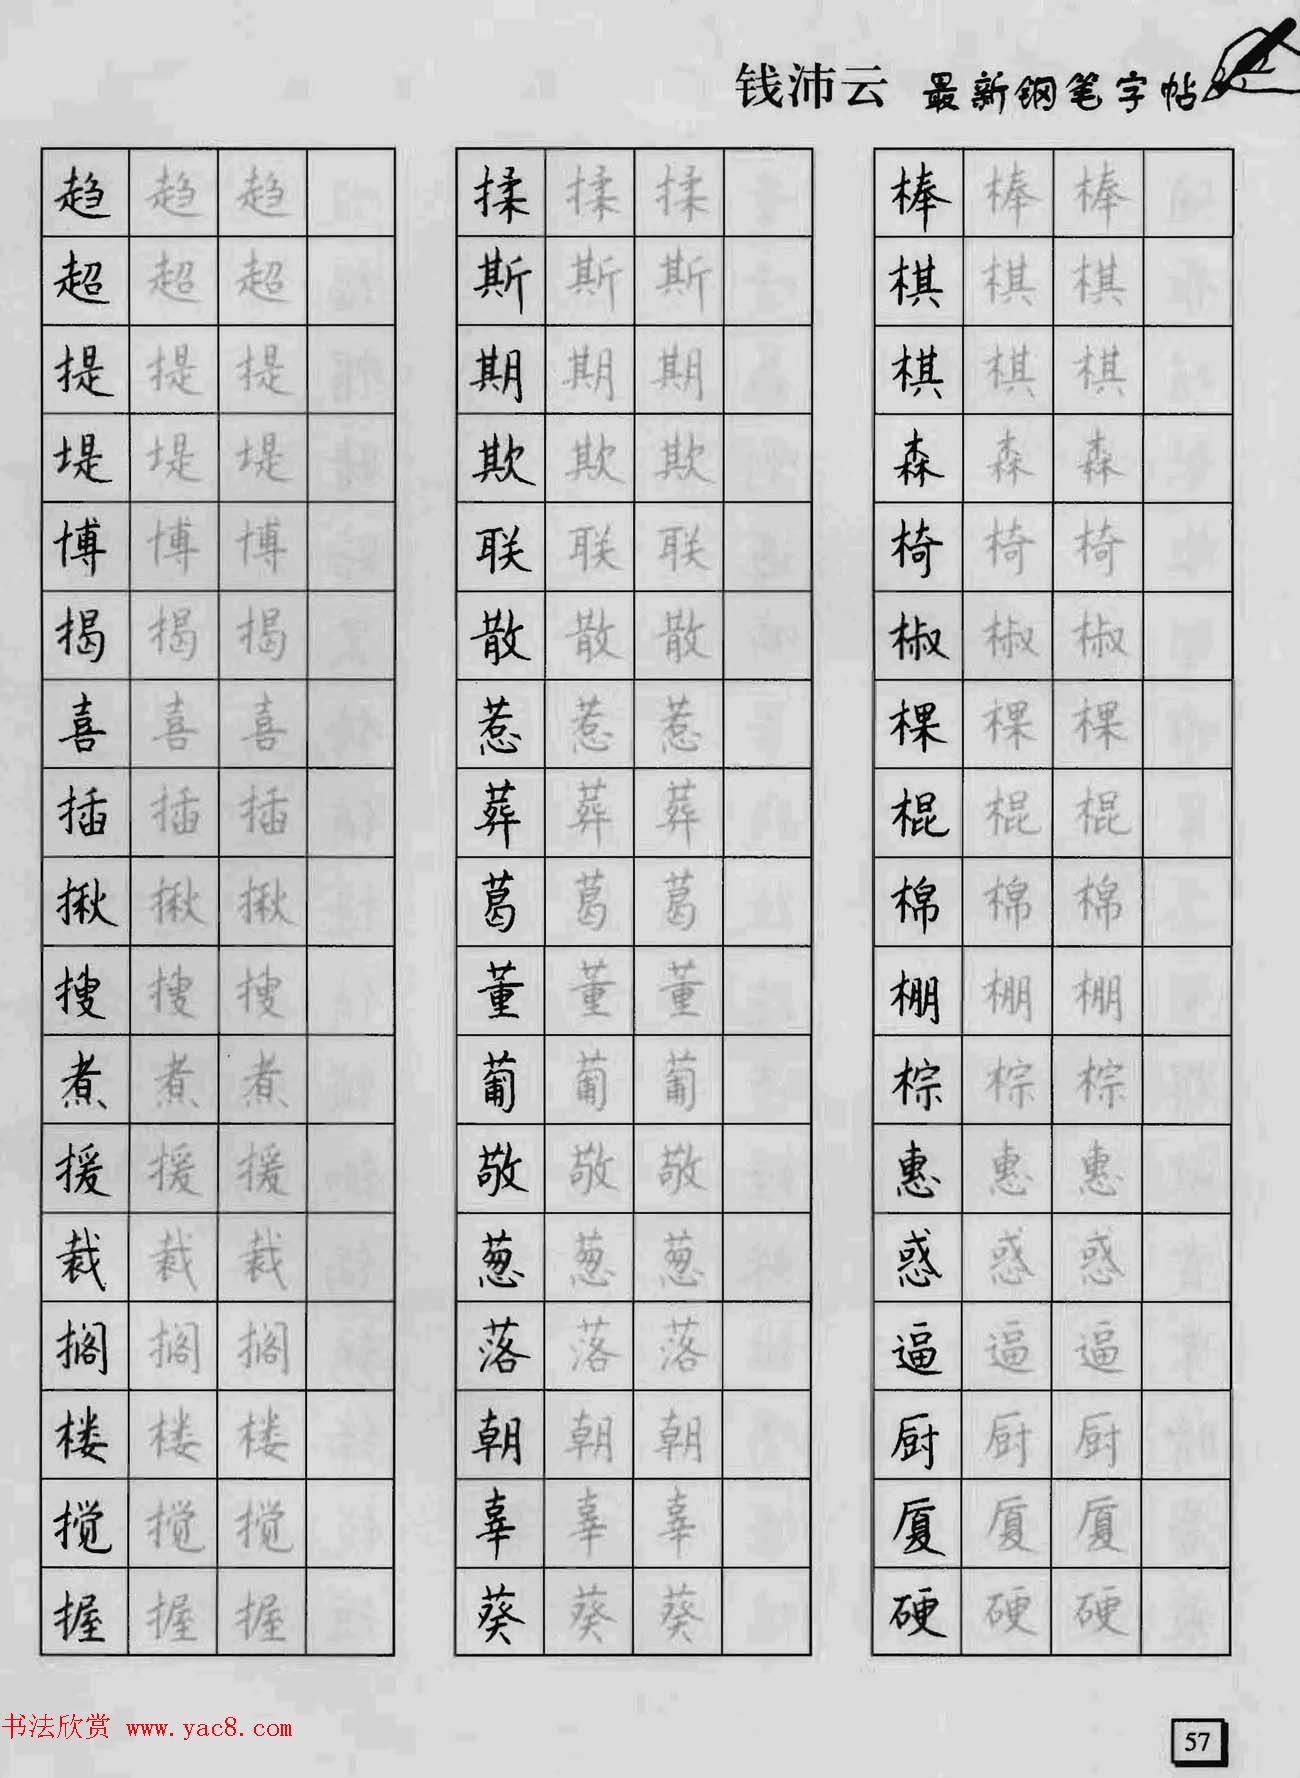 钱沛云 最新钢笔字帖
趋 趋 趋
超 超 超
提 提 提
堤 堤 堤
博 博 博
揭 揭 揭
喜 喜 喜
插 插 插
揪 揪 揪
搜 搜 搜
煮 煮 煮
援 援 援
裁 裁 裁
搁 搁 搁
楼 楼 楼
搅 搅 搅
握 握 握
揉 揉 揉
斯 斯 斯
期 期 期
欺 欺 欺
联 联 联
散 散 散
惹 惹 惹
葬 葬 葬
葛 葛 葛
董 董 董
葡 葡 葡
敬 敬 敬
葱 葱 葱
落 落 落
朝 朝 朝
辜 辜 辜
葵 葵 葵
棒 棒 棒
棋 棋 棋
棋 棋 棋
森 森 森
椅 椅 椅
椒 椒 椒
棵 棵 棵
棍 棍 棍
棉 棉 棉
棚 棚 棚
棕 棕 棕
惠 惠 惠
惑 惑 惑
逼 逼 逼
厨 厨 厨
厦 厦 厦
硬 硬 硬
书法欣赏 www.yac8.com
57